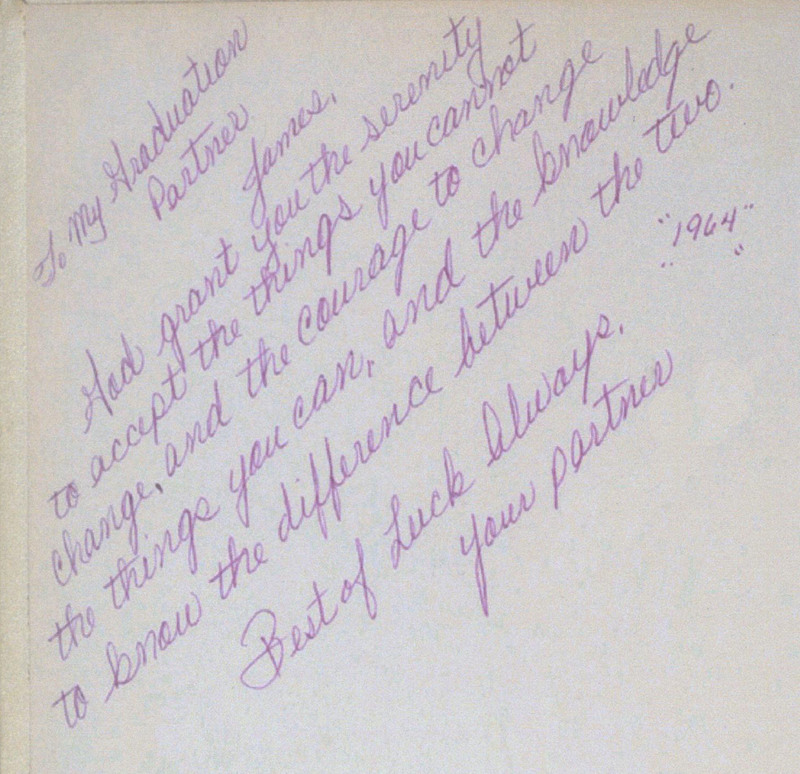 To My Graduation
Partner
James,
God grant you the serenity
to accept the things you cannot
change, and the courage to change
the things you can, and the knowledge
to know the difference between the two.
Best of Luck Always,
your partner
"1964"